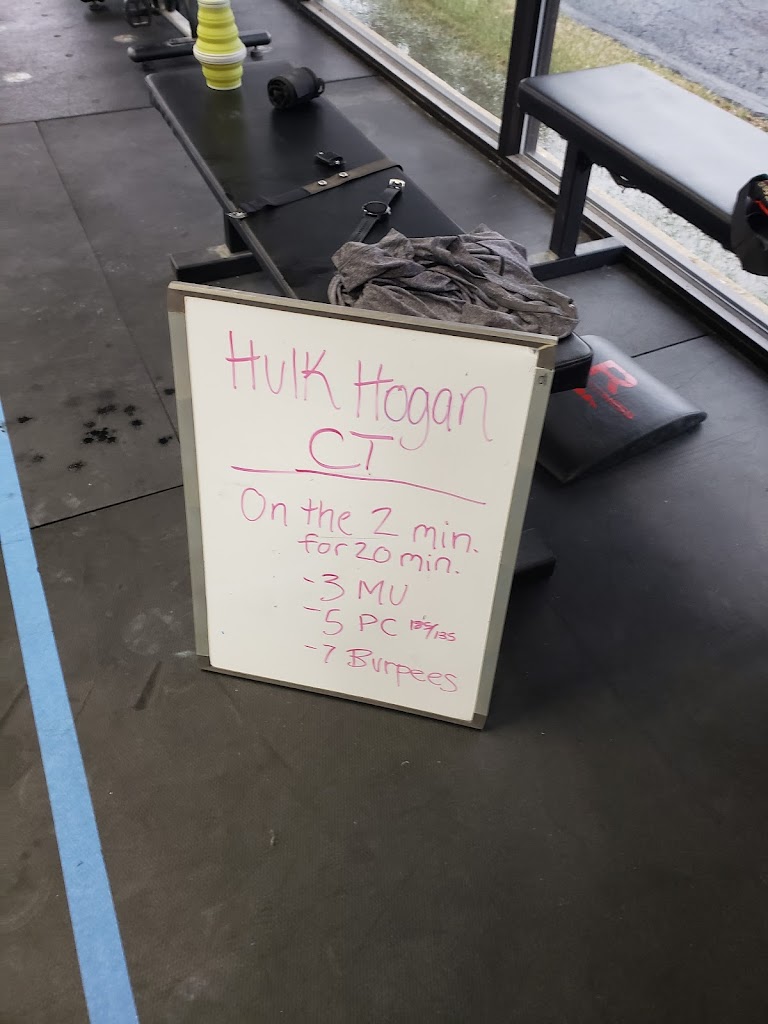 Hulk Hogan
CT
On the 2 min.
for 20 min.
-3 MU
-5 PC 185/135
-7 Burpees
R